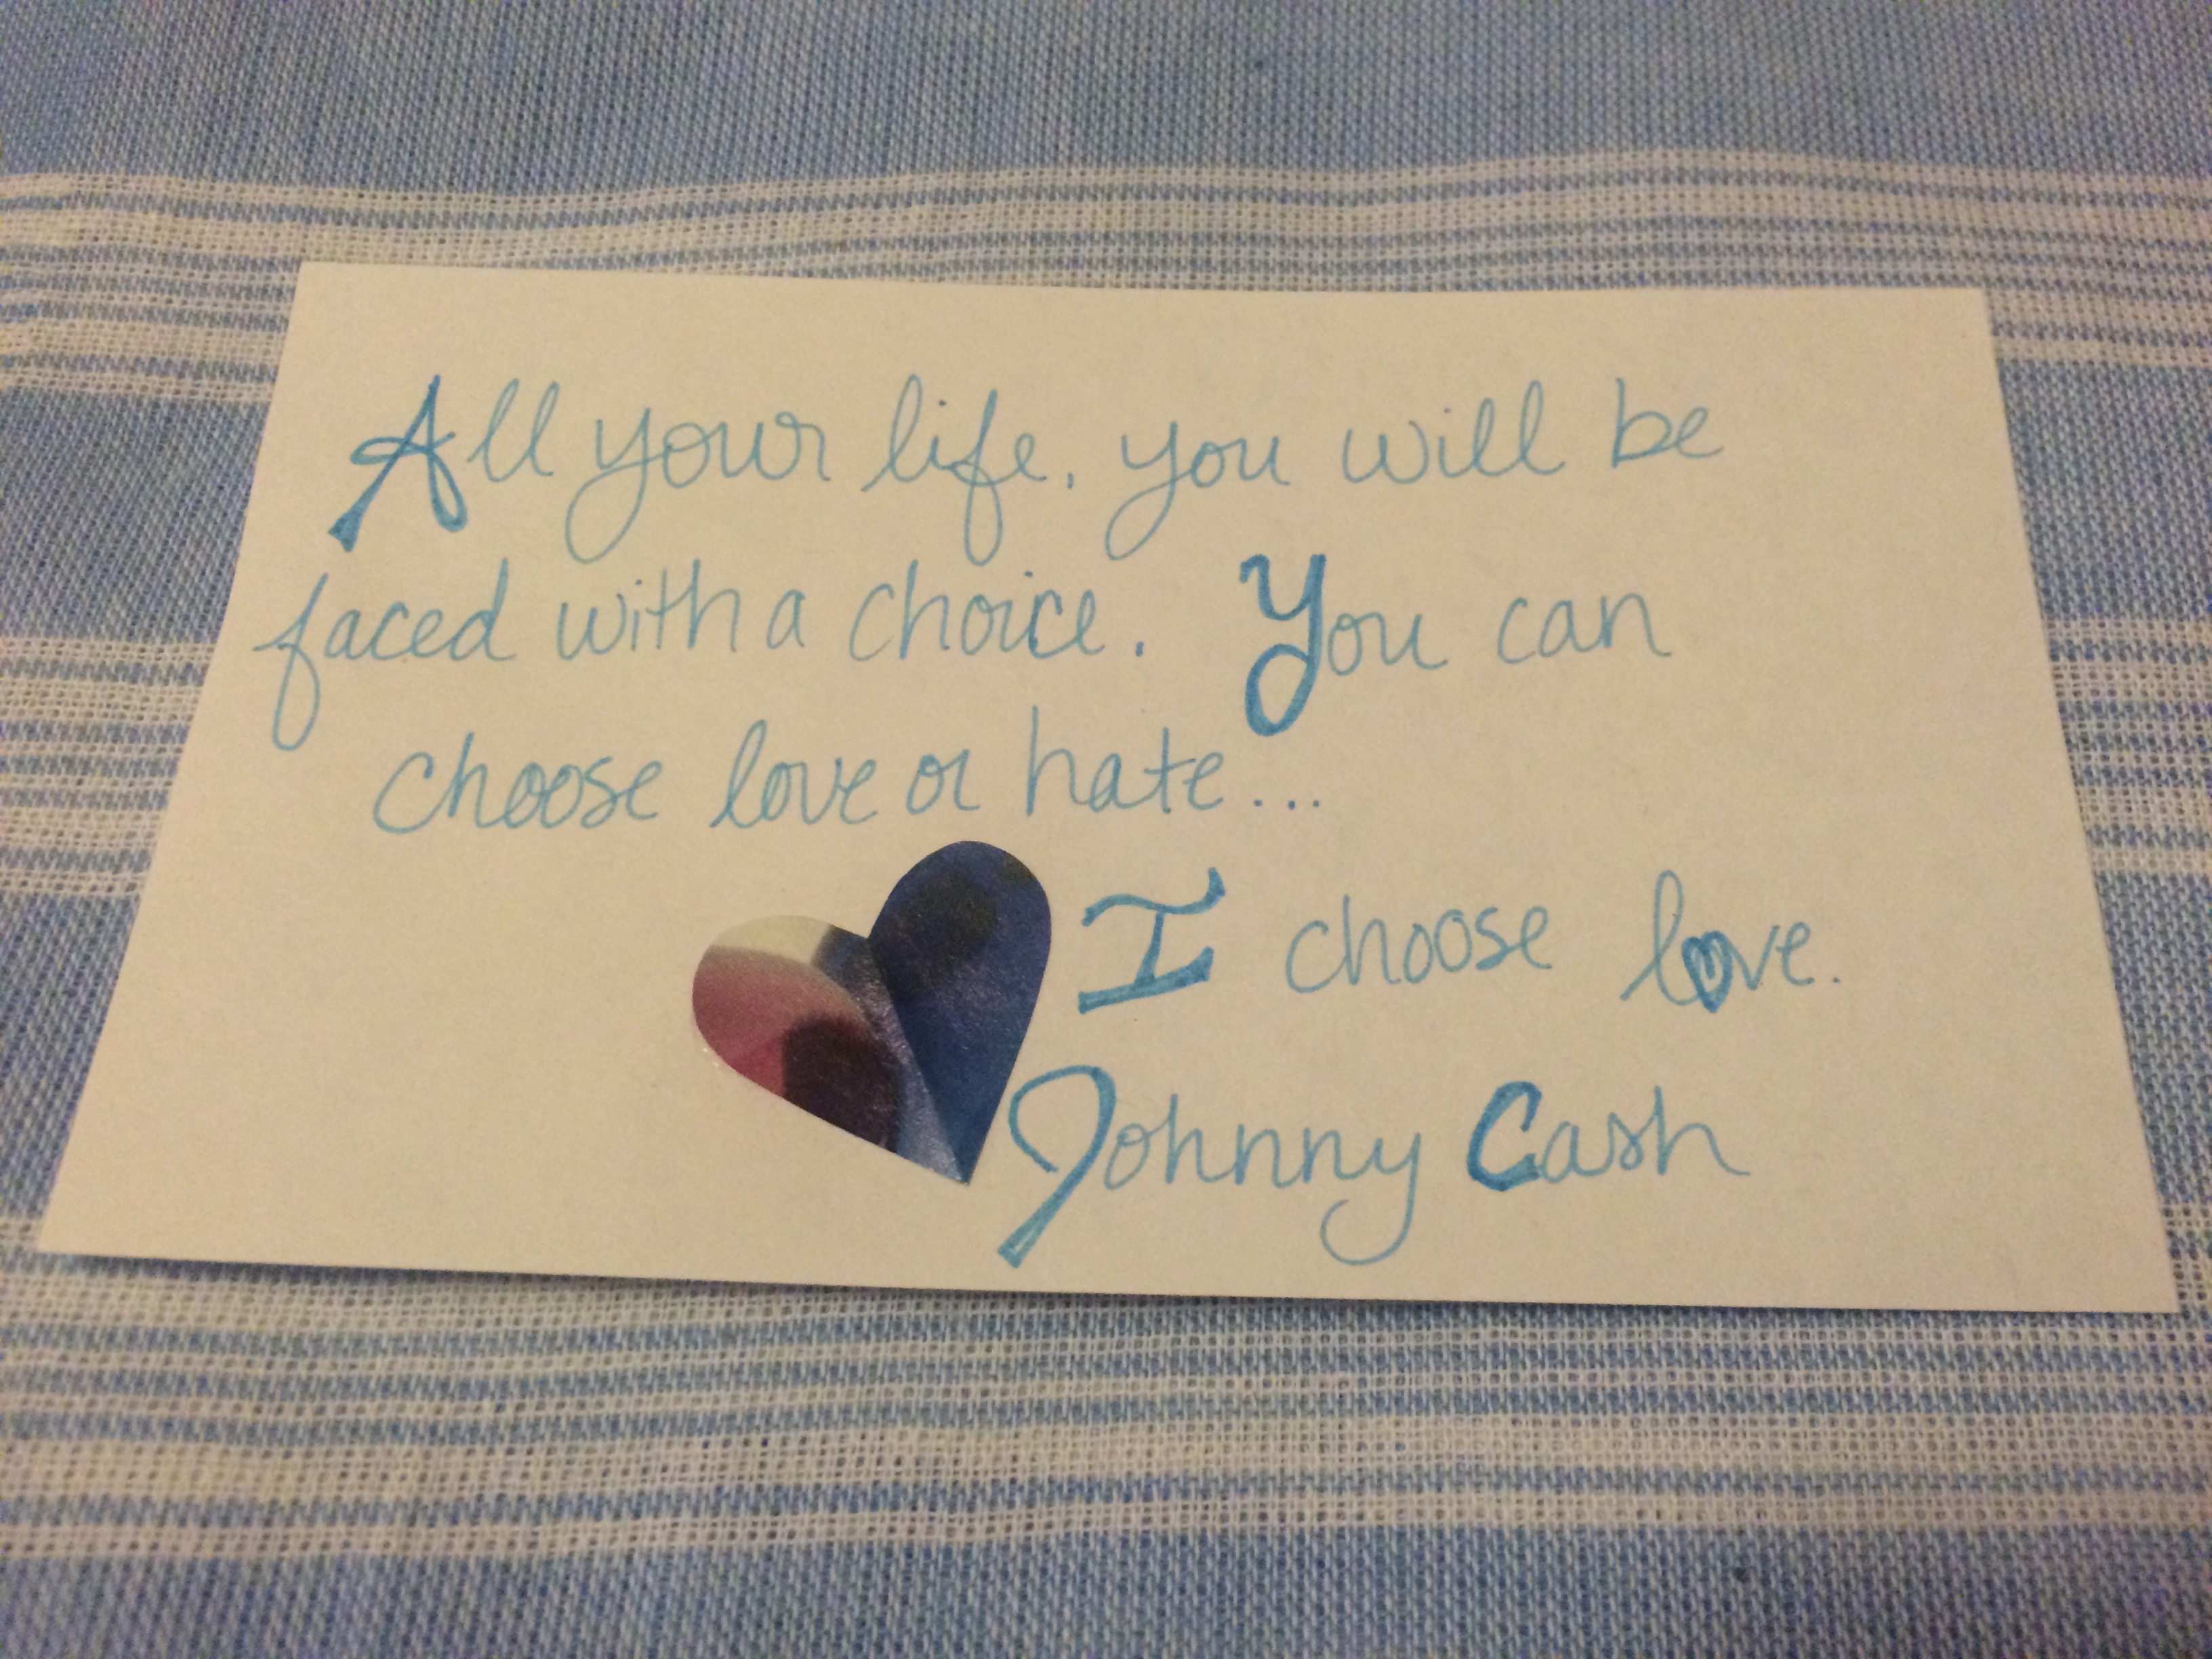 All your life, you will be
faced with a choice. You can
choose love or hate...
I choose love.
Johnny Cash